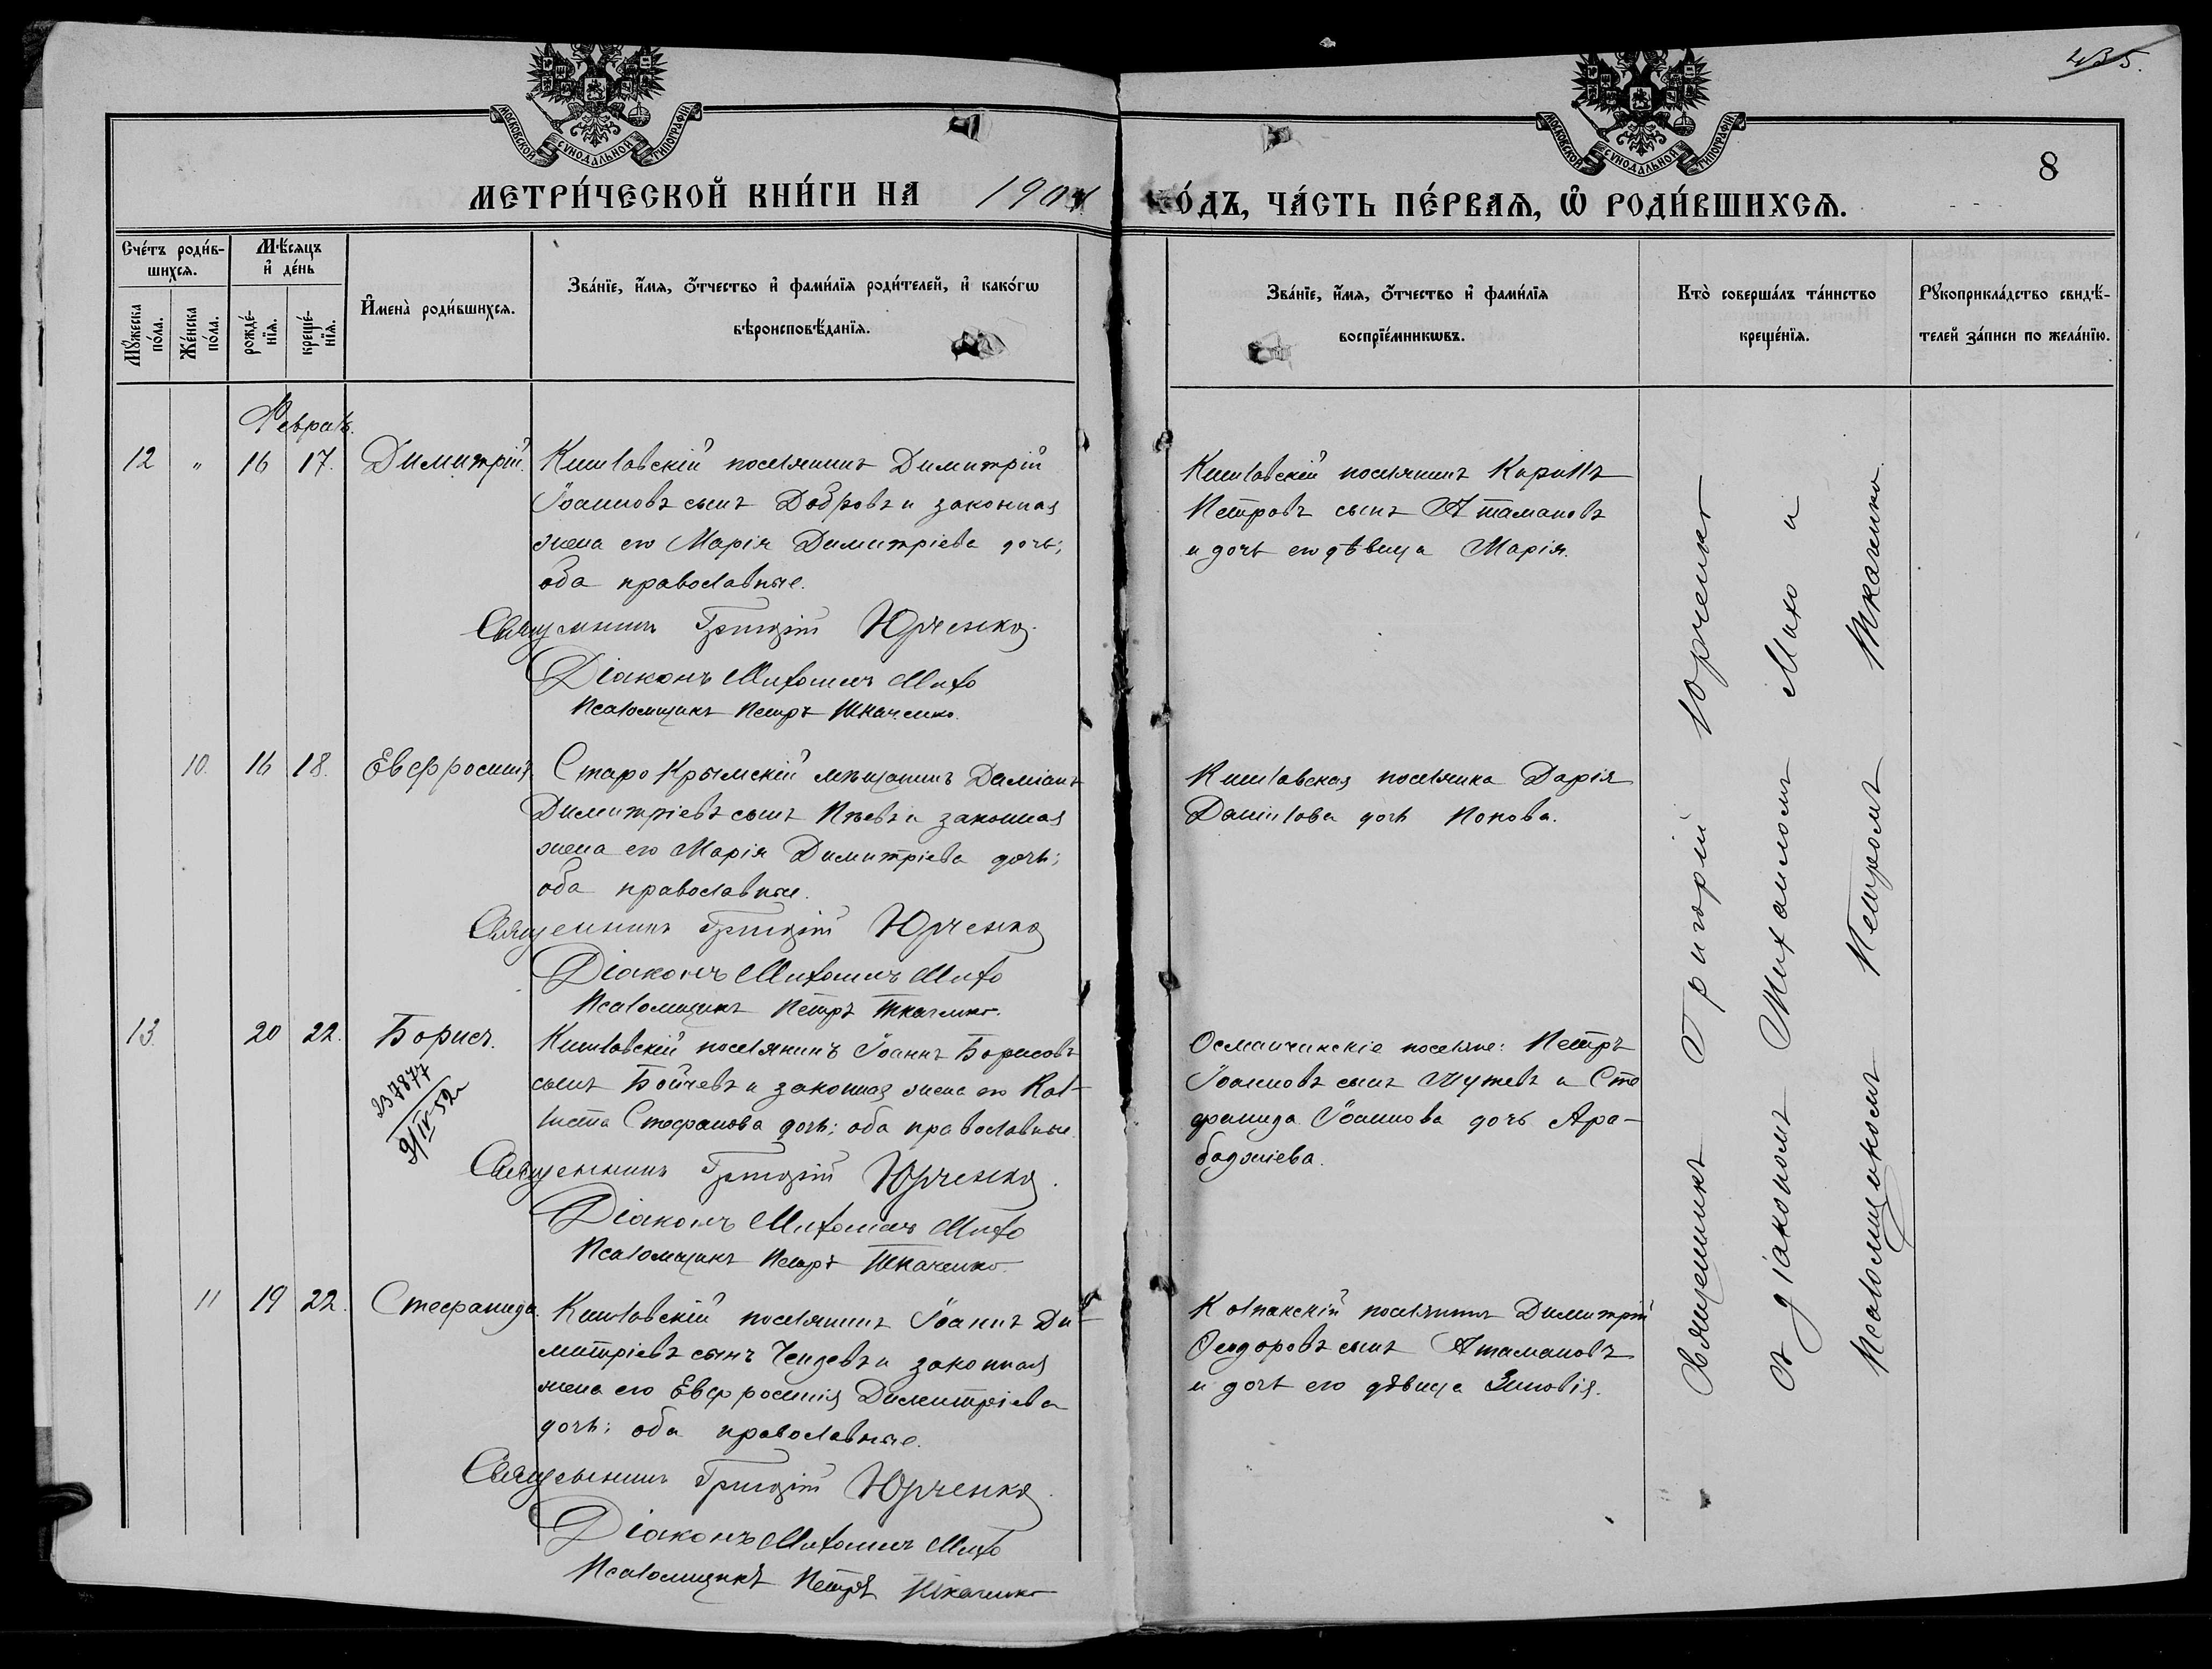 435.
МОСКОВСКОЙ СУНОДАЛЬНОЙ ТИПОГРАФІИ
МОСКОВСКОЙ СУНОДАЛЬНОЙ ТИПОГРАФІИ
8
МЕТРИ́ЧЕСКОЙ КНИ́ГИ НА 1904 ГО́ДЪ, ЧА́СТЬ ПЕ́РВАѦ, Ѡ РОДИ́ВШИХСѦ.
Сче́тъ роди́в-
шихсѧ.
Мѣ́сѧцъ
и де́нь
Мꙋ́жеска
по́ла.
Же́нска
по́ла.
рожде́-
нїѧ.
креще́-
нїѧ.
Имена̀ роди́вшихсѧ.
Зва́нїе, и́мѧ, о́тчество и фами́лїѧ роди́телей, и како́гѡ
вѣроисповѣ́данїѧ.
Зва́нїе, и́мѧ, о́тчество и фами́лїѧ
воспрїе́мникѡвъ.
Кто̀ соверша́лъ та́инство
креще́нїѧ.
Рꙋкоприкла́дство свидѣ́-
телей за́писи по жела́нїю.
Февраль.
12 " 16 17. Димитрій.
Кишловскій поселянинъ Димитрій
Іоанновъ сынъ Добровъ и законная
жена его Марія Димитріева дочь;
оба православные.
Священникъ Григорій Юрченко.
Діаконъ Михаилъ Михо
Псаломщикъ Петръ Ткаченко.
Кишловскій поселянинъ Кириллъ
Петровъ сынъ Атамановъ
и дочь его дѣвица Марія.
10. 16 18. Евфросинія
Старо Крымскій мѣщанинъ Даміанъ
Димитріевъ сынъ и законная
жена его Марія Димитріева дочь;
оба православные.
Священникъ Григорій Юрченко
Діаконъ Михаилъ Михо
Псаломщикъ Петръ Ткаченко.
Кишловская поселянка Дарія
Даніилова дочь Попова.
13. 20 22. Борисъ.
237877
9/IV-52г
Кишловскій поселянинъ Іоаннъ Борисовъ
сынъ Бойчевъ и законная жена его Кал-
листа Стефанова дочь; оба православные.
Священникъ Григорій Юрченко.
Діаконъ Михаилъ Михо
Псаломщикъ Петръ Ткаченко.
Османчинскіе поселяне: Петръ
Іоанновъ сынъ и Сте
фанида Іоаннова дочь Ара-
баджіева.
11 19 22. Стефанида.
Кишловскій поселянинъ Іоаннъ Ди-
митріевъ сынъ Чендевъ и законная
жена его Евфросинія Димитріева
дочь; оба православные.
Священникъ Григорій Юрченко.
Діаконъ Михаилъ Михо
Псаломщикъ Петръ Ткаченко
Колпакскій поселянинъ Димитрій
Ѳеодоровъ сынъ Атамановъ
и дочь его дѣвица Зиновія.
Священникъ Григорій Юрченко
съ діакономъ Михаиломъ Михо и
псаломщикомъ Петромъ Ткаченко.